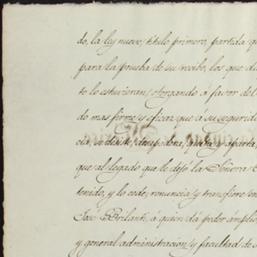 do, la ley nueve, titulo primero, partida qu
para la prueba de su recibo, los que da
to lo estuvieran; otorgando á favor del
do mas firme y eficaz que á su seguridad
cia, se desiste, desapodera, quita y aparta
que al legado que le dejó la Señora
tenido, y lo cede, renuncia y transfiere en
José Brilanti, á quien da poder amplio
y general administracion, y facultad de